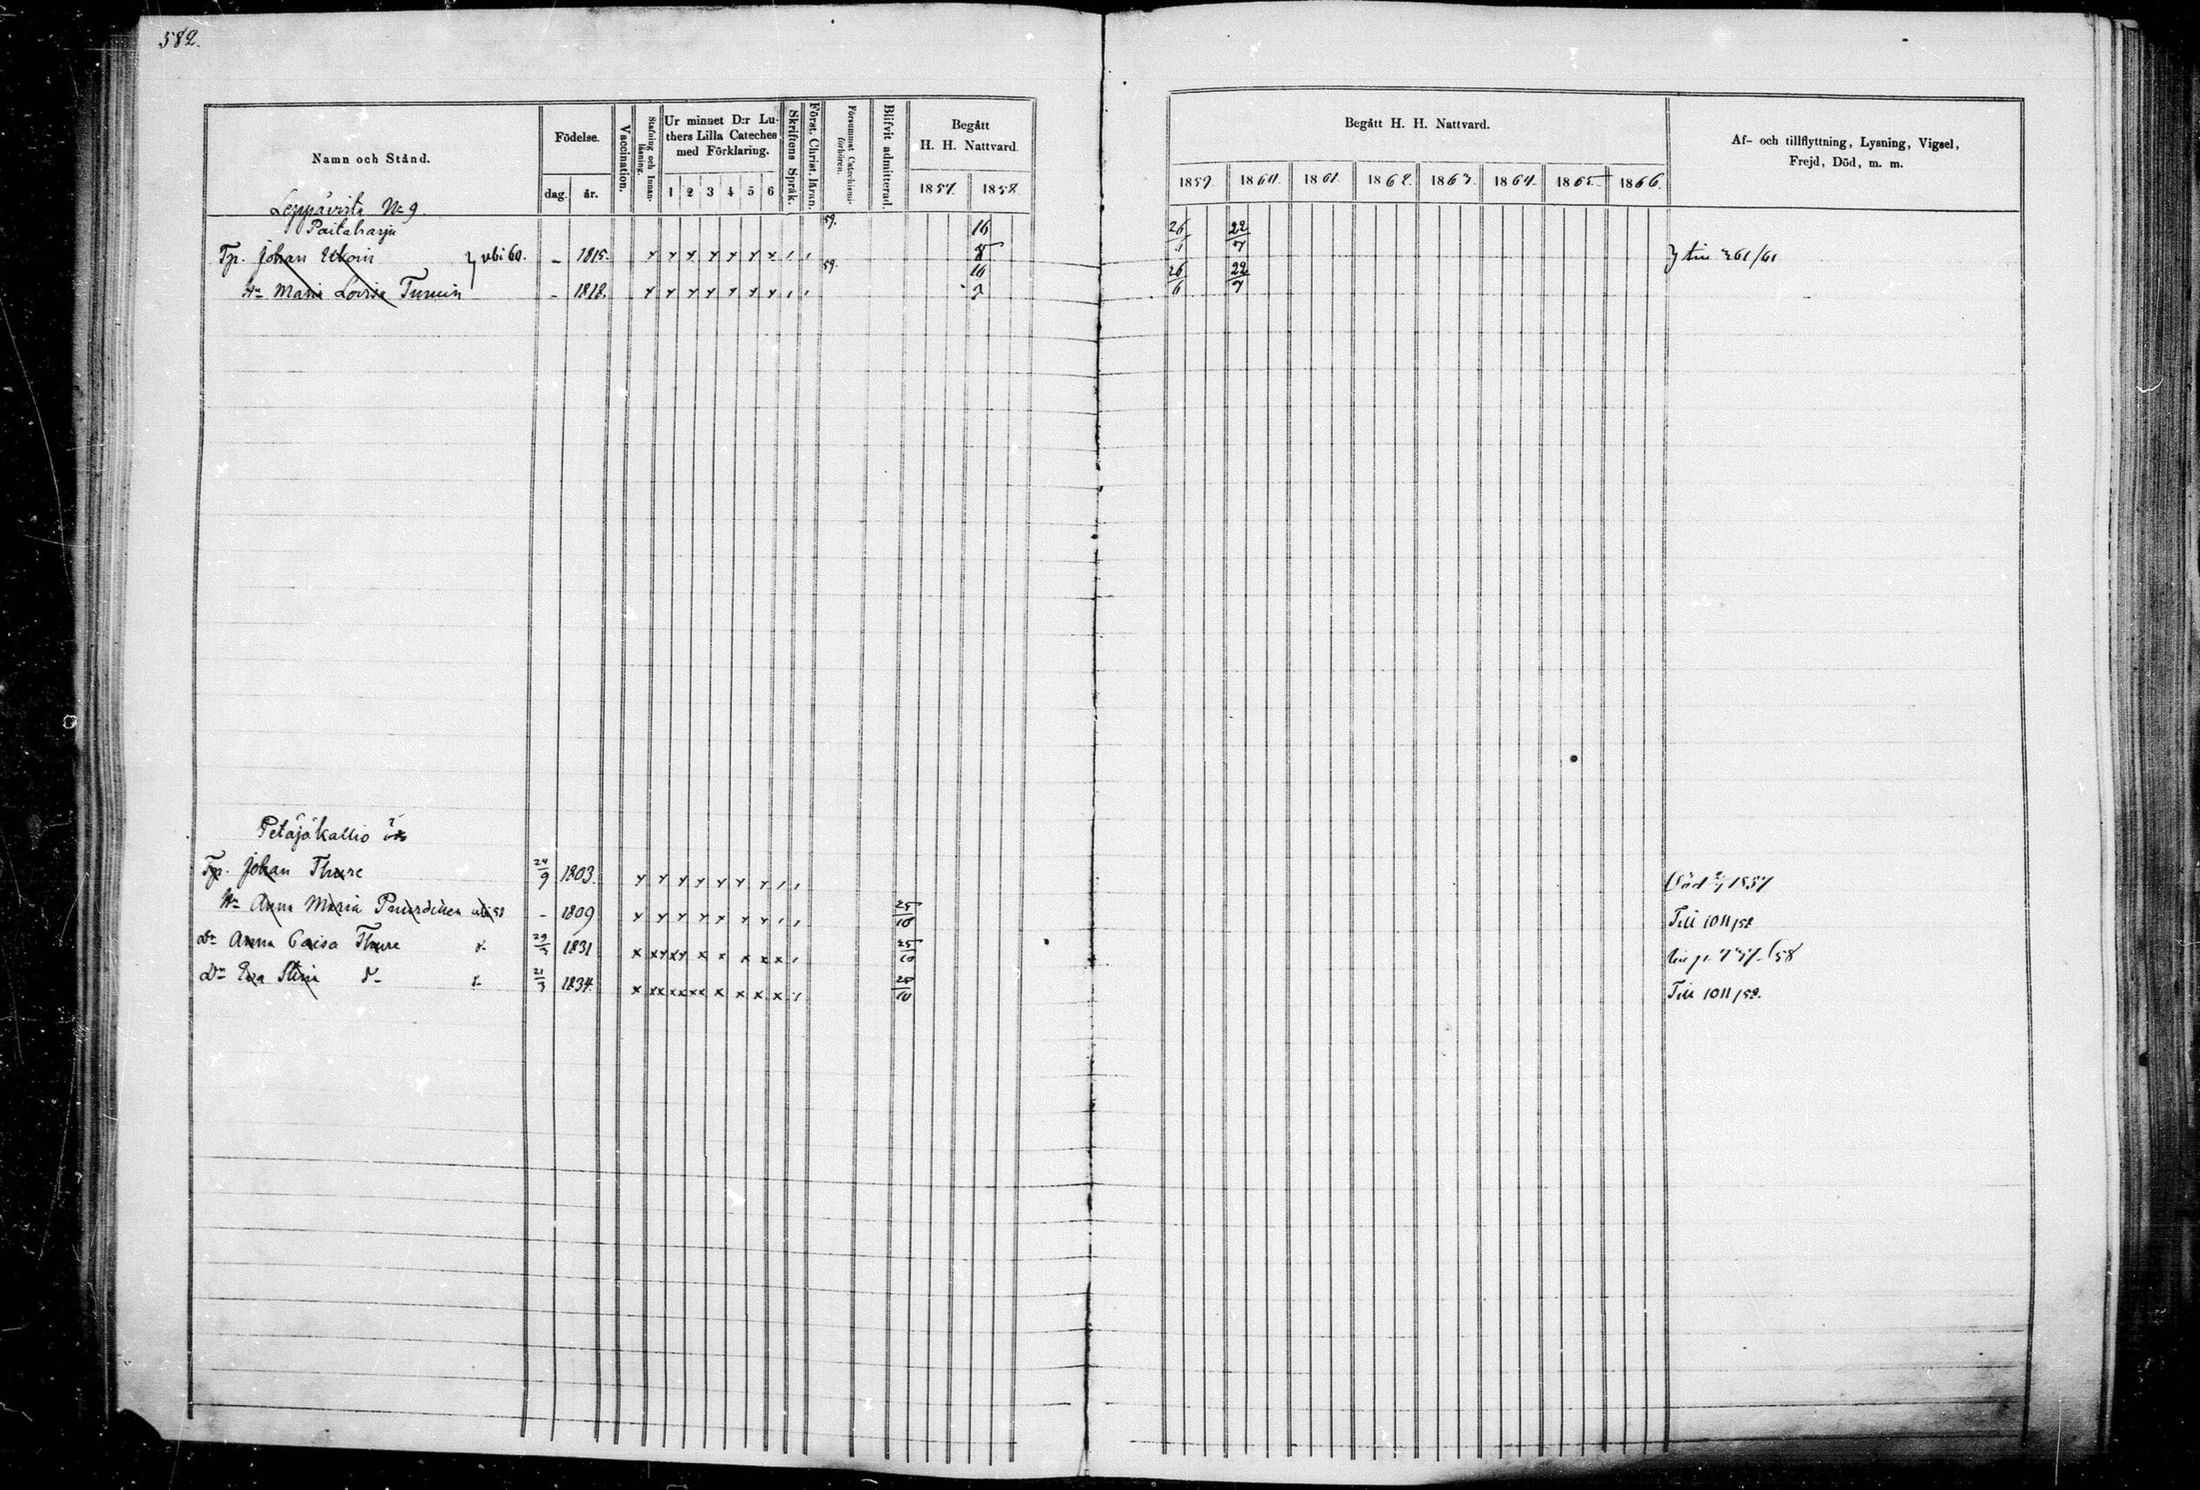 582.
Namn och Stånd.
Födelse.
dag. år.
Vaccination.
Stafning och Innanläsning.
Ur minnet D:r Luthers Lilla Cateches med Förklaring.
1 2 3 4 5 6
Skriftens Språk.
Först. Christ. läran.
Försummat Catechismiförhören.
Blifvit admitterad.
Begått H. H. Nattvard.
1857. 1858.
Begått H. H. Nattvard.
1859. 1860. 1861. 1862. 1863. 1864. 1865. 1866.
Af- och tillflyttning, Lysning, Vigsel, Frejd, Död, m. m.
Leppävirta No 9.
Paitaharju
Tp. Johan ubi 60. - 1815. 59. 16 26 22/7
Hu Maria Lovisa - 1818. 59. 16 26/6 22/7
Petäjäkallio
Tp. Johan Thure 24/9 1803. Död 1857
Hu Anna Maria - 1809 25/10 Till 1011/58
Dr Anna Caisa Thure x 29/3 1831 25/10
Dr Eva Stina d- x 21/3 1834. 10 Till 1011/58.